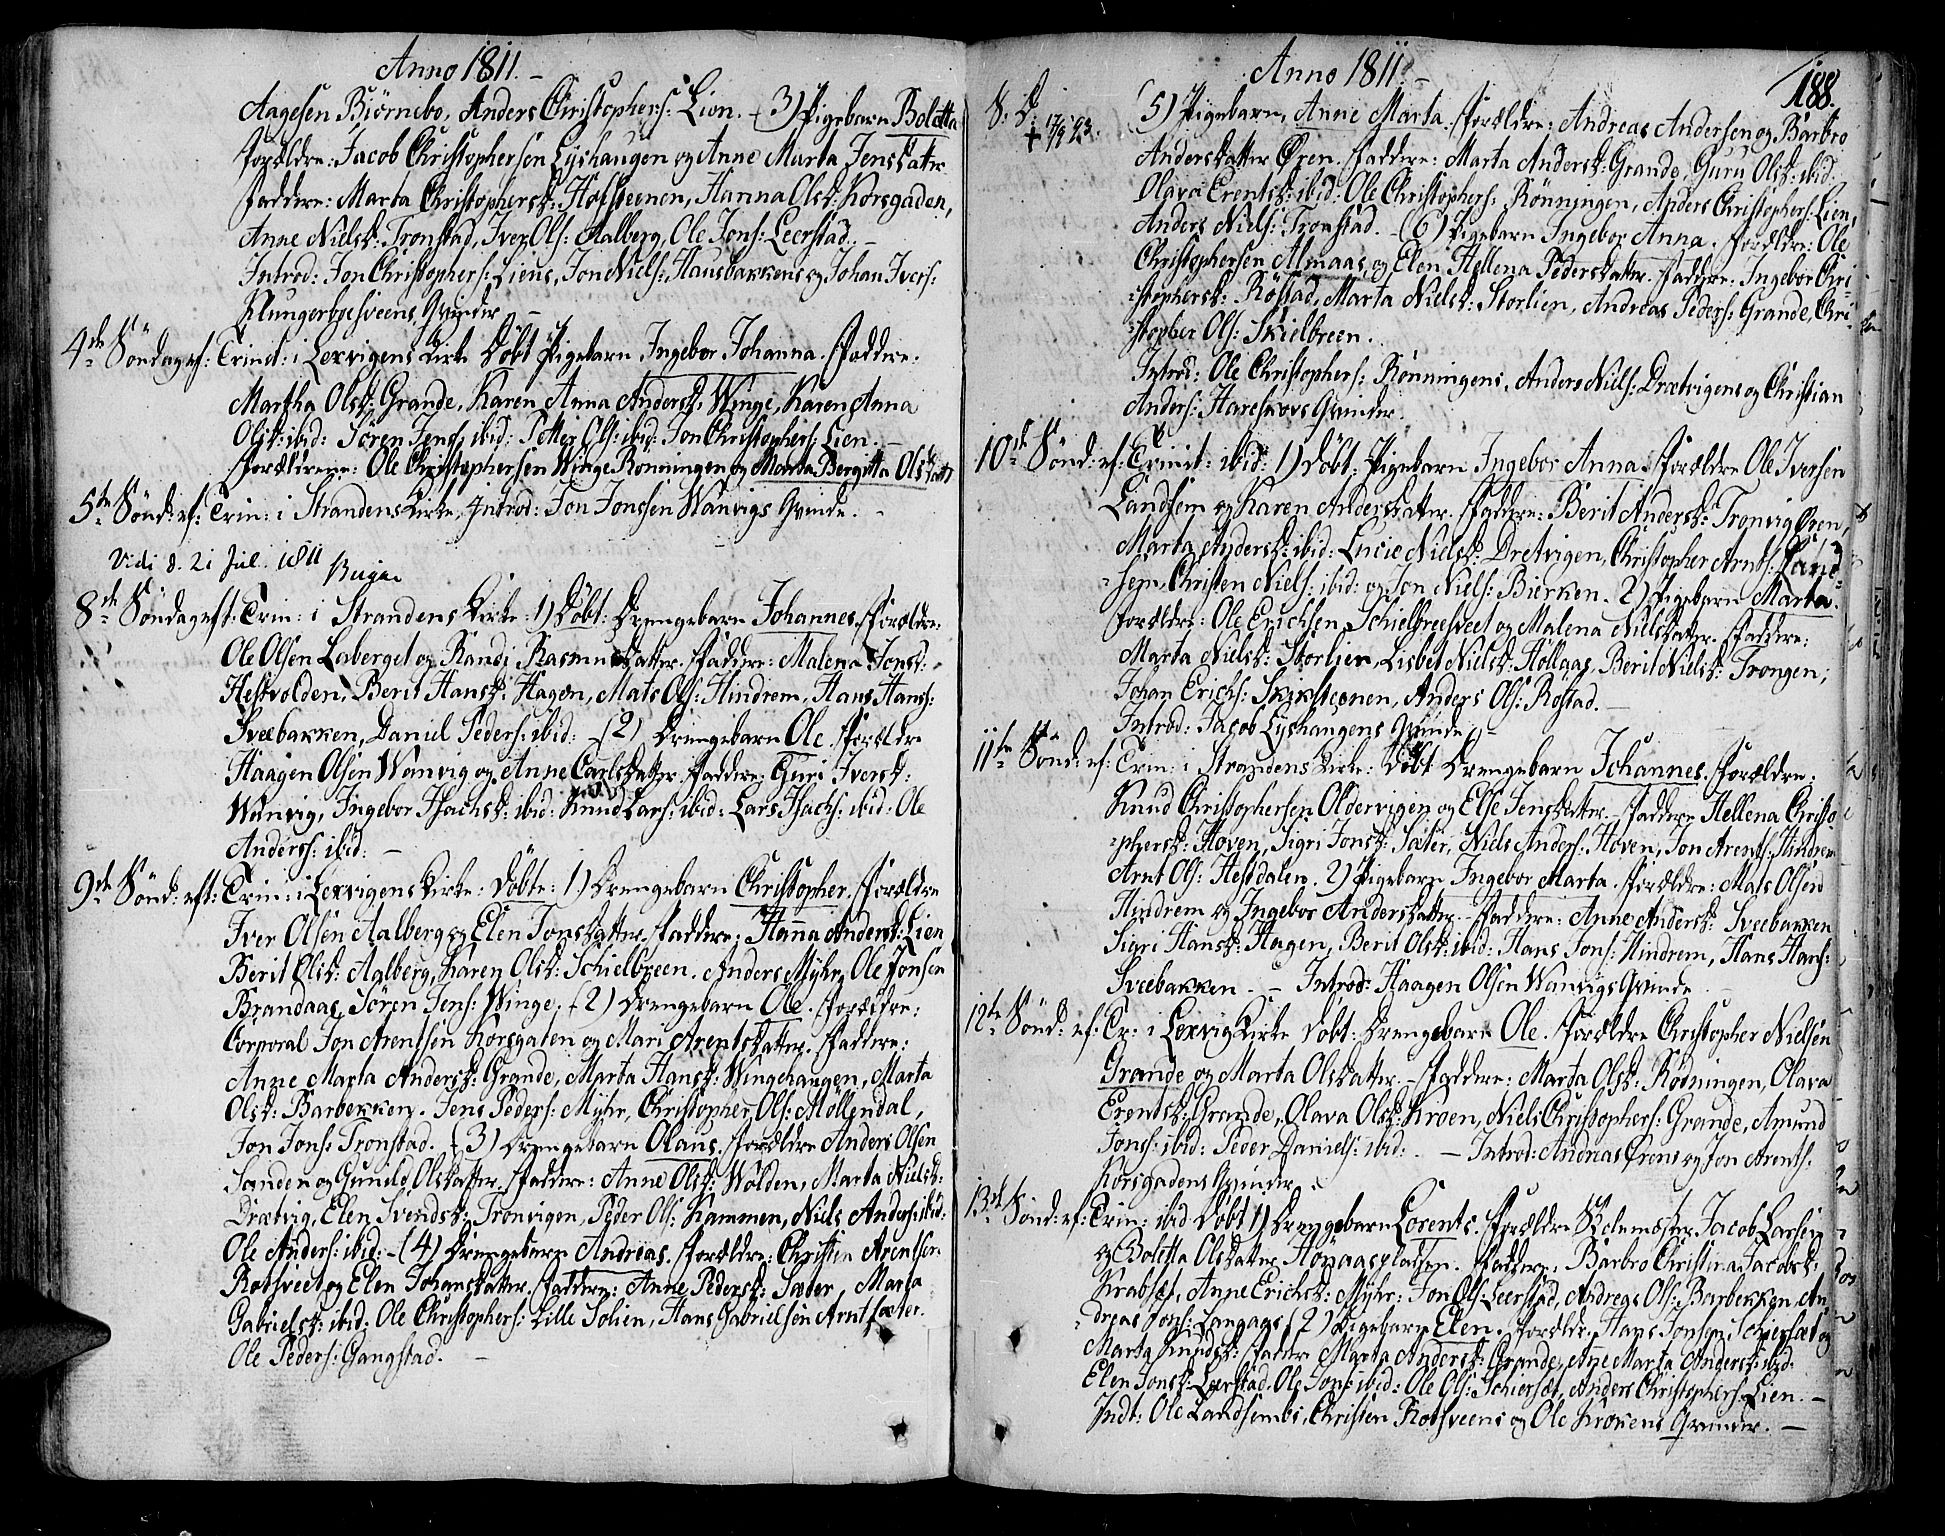 Anno 1811.
Aagesen Biørnebo, Anders Christophers: Lien. - 3) Pigebarn Boletta
Forældre: Jacob Christophersen Lyshaugen og Anne Marta Jensdatter
Faddere: Marta Christophersd: Hofsteenen, Hanna Olsd: Korsgaden,
Anne Nielsd: Tronstad, Iver Ols: Aalberg, Ole Jons: Leerstad. -
Introd: Jon Christophers: Liens, Jon Niels: Hausbakkens og Johan Ivers:
Klungerboesveens Qvinder. -
4de Søndag ef: Trinit: i Lexvigens Kirke Døbt Pigebarn Ingebor Johanna. Faddere:
Martha Olsd: Grande, Karen Anna Andersd: Winge, Karen Anna
Olsd: ibid: Søren Jens: ibid: Petter Ols: ibid: Jon Christophers: Lien. -
Forældrene: Ole Christophersen Winge Rønningen og Marta Bergitta Olsdatt
5te Sønd: ef: Trin: i Strandens Kirke, Introd: Jon Jonssen Wanvigs Qvinde. -
Vidi d. 21 Jul. 1811
8de Søndag eft: Trin: i Strandens Kirke: 1) Døbt: Drengebarn Johannes. Forældre:
Ole Olsen Laberget og Randi Rasmusdatter. Faddere: Malena Jonsd:
Hestvolden, Berit Hansd: Hagen, Mats Ols: Hindrem, Hans Hans:
Sveebakken, Daniel Peders: ibid: - (2) Drengebarn Ole. Forældre
Haagen Olsen Wanvig og Anne Carlsdatter. Faddere: Guri Iversd:
Wanvig, Ingebor Isachsd: ibid: Knud Lars: ibid: Lars Isachs: ibid: Ole
Anderss: ibid: -
9de Sønd: eft: Trin: i Lexvigens Kirke: Døbte: 1) Drengebarn Christopher. Forældre
Iver Olsen Aalberg og Elen Jonsdatter. Faddere: Hanna Andersd: Lien
Berit Olsd: Aalberg, Karen Olsd: Schielbreen. Anders Myhr, Ole Jonsen
Brandaas, Søren Jens: Winge. - (2) Drengebarn Ole. Forældre:
Corporal Jon Arentsen Korsgaten og Mari Arentsdatter. Faddere:
Anne Marta Andersd: Grande, Marta Hansd: Wingehaugen, Marta
Olsd: Barbekken. Jens Peders: Myhr, Christopher Ols: Møllendal,
Jon Jons: Tronstad. (3) Drengebarn Olaus. Forældre Anders Olsen
Sanden og Gunild Olsdatter. Faddere: Anne Olsd: Wolden, Marta Nielsd:
Drætvig, Elen Svendsd: Tronvigen, Peder Ols: Hammen, Niels Anders: ibid:
Ole Anders: ibid: - (4) Drengebarn Andreas. Forældre: Christen Arentsen
Rotsveet og Elen Johansdatter. Faddere: Anne Pedersd: Sæder, Marta
Gabrielsd: ibid: Ole Christophers: Lille Solien, Hans Gabrielsen Arntsæter.
Ole Peders: Gangstad. -
Anno 1811. -
188.
8. D: (5) Pigebarn, Anne Marta. Forældre: Andreas Andersen og Barbro
Andersdatter Øren. Faddere: Marta Andersd: Grande, Guru Olsd: ibid:
Olava Erentsd: ibid: Ole Christophers: Rønningen, Anders Christophers: Lien,
Anders Niels: Tronstad. - (6) Pigebarn Ingebor Anna. Forældre: Ole
Christophersen Almaas, og Elen Hellena Pedersdatter. Faddere: Ingebor Chri-
-stophersd: Røstad, Marta Nielsd: Storlien, Andreas Peders: Grande, Chri-
-stopher Ols: Skielbreen.
Introd: Ole Christophers: Rønningens, Anders Niels: Drætvigens og Christian
Anders: Hareskovs Qvinder.
10de Sønd: ef: Trinit: ibid: 1) Døbt: Pigebarn Ingebor Anna. Forældre Ole Iversen
Landsem og Karen Andersdatter. Faddere: Berit Andersd: Tronvig Øren
Marta Andersd: ibid: Lucie Nielsd: Dretvigen, Christopher Arnts: Land-
-sem, Christen Niels: ibid: og Jon Niels: Bierken. 2) Pigebarn Marta.
Forældre: Ole Erichsen Schielbreesveet og Malena Nielsdatter. Faddere:
Marta Nielsd: Storlien, Lisbet Nielsd: Hollaas, Berit Nielsd: Trongen,
Johan Erichs: Skiksteenen, Anders Ols: Rostad. -
Introd: Jacob Lyshaugens Qvinde.
11te Sønd: ef: Trin: i Strandens Kirke: Døbt Drengebarn Johannes. Forældre:
Knud Christophersen Oldervigen og Else Jensdatter. Faddere Hellena Christo-
-phersd: Hoven, Sigri Jonsd: Sæter, Niels Anders: Hoven, Jon Arents: Hindrem
Arnt Ols: Hestdalen. 2) Pigebarn Ingebor Marta. Forældre: Mats Olsen
Hindrem og Ingebor Andersdatter. - Faddere: Anne Andersd: Sveebakken
Sigri Hansd: Hagen, Berit Olsd: ibid: Hans Jons: Hindrem, Hans Hans:
Sveebakken. - Introd: Haagen Olsen Wanvigs Qvinde
12te Sønd: ef: Tr: i Lexvig Kirke Døbt: Drengebarn Ole. Forældre Christopher Nielsen
Grande og Marta Olsdatter. - Faddere: Marta Olsd: Rødningen, Olava
Erentsd: Grande, Olava Olsd: Kroen, Niels Christophers: Grande, Amund
Jons: ibid: Peder Daniels: ibid: - Introd: Andreas Ørens og Jon Arents:
Korsgadens Qvinder.
13de Sønd: ef: Trin: ibid Døbt 1) Drengebarn Lorents. Forældre Skolemester Jacob Larsen
og Boletta Olsdatter Høyaaspladsen. Faddere: Barbro Christina Jacobsd:
Krabsæt, Anne Erichsd: Myhr: Jon Ols: Leerstad, Andreas Ols: Barbekken, An-
-dreas Jons: Langaas (2) Pigebarn Elen. Forældre Hans Jonsen Schiersæt og
Marta Knudsd: Faddere Marta Andersd: Grande, Anne Marta Andersd: ibid:
Elen Jonsd: Leerstad. Ole Jons: ibid: Ole Ols: Schiersæt, Anders Christophers: Lien. -
Indt: Ole Landsembs, Christen Rotsveens og Ole Krokens Qvinder. -